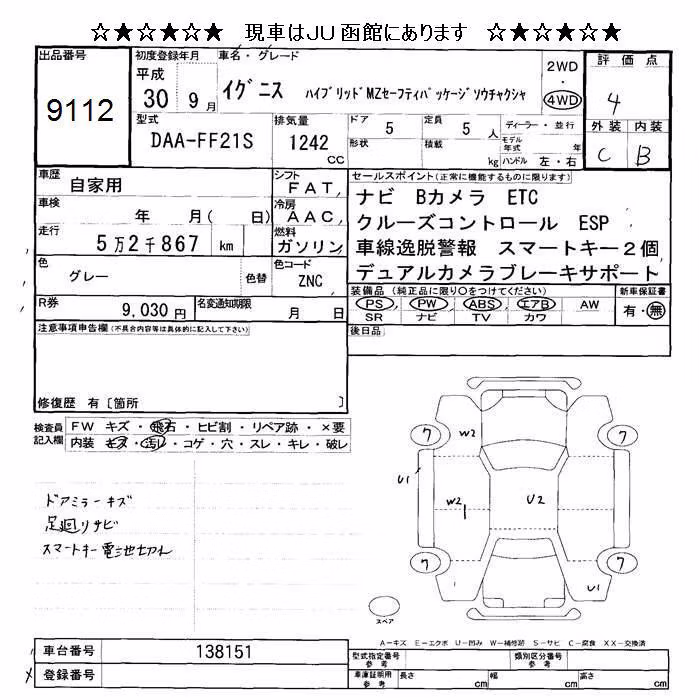 ☆★☆★☆★ 現車はJU函館にあります ☆★☆★☆★
出品番号
9112
初度登録年月
平成
30 9月
車名・グレード
イグニス ハイブリッドMZセーフティパッケージソウチャクシャ
2WD
・
4WD
評価点
4
外装 内装
C B
型式
DAA-FF21S
排気量
1242
CC
ドア 5
形状
定員 5 人
積載 kg
ディーラー・並行
モデル年式 年
ハンドル 左・右
車歴 自家用
車検 年 月( 日)
走行 5万2千867 km
色 グレー 色替
シフト FAT
冷房 AAC
燃料 ガソリン
色コード ZNC
R券 9,030円
名変通知期限 月 日
セールスポイント(正常に機能するものに限ります)
ナビ Bカメラ ETC
クルーズコントロール ESP
車線逸脱警報 スマートキー2個
デュアルカメラブレーキサポート
装備品(純正品に限り○をつけてください)
PS PW ABS エアB AW
SR ナビ TV カワ
新車保証書
有・無
後日品
注意事項申告欄(不具合内容等は具体的に記入して下さい)
修復歴 有〔箇所 〕
検査員記入欄
FW キズ・飛石・ヒビ割・リペア跡・×要
内装 キズ・汚レ・コゲ・穴・スレ・キレ・破レ
ドアミラーキズ
足廻りサビ
スマートキー電池切れ
7 W2 7
U1 W2 U2
7 7
U1
スペア
A-キズ E-エクボ U-凹み W-補修跡 S-サビ C-腐食 XX-交換済
車台番号 138151
登録番号
型式指定番号 参考
類別区分番号 参考
車庫証明用 参考
長さ cm
幅 cm
高さ cm